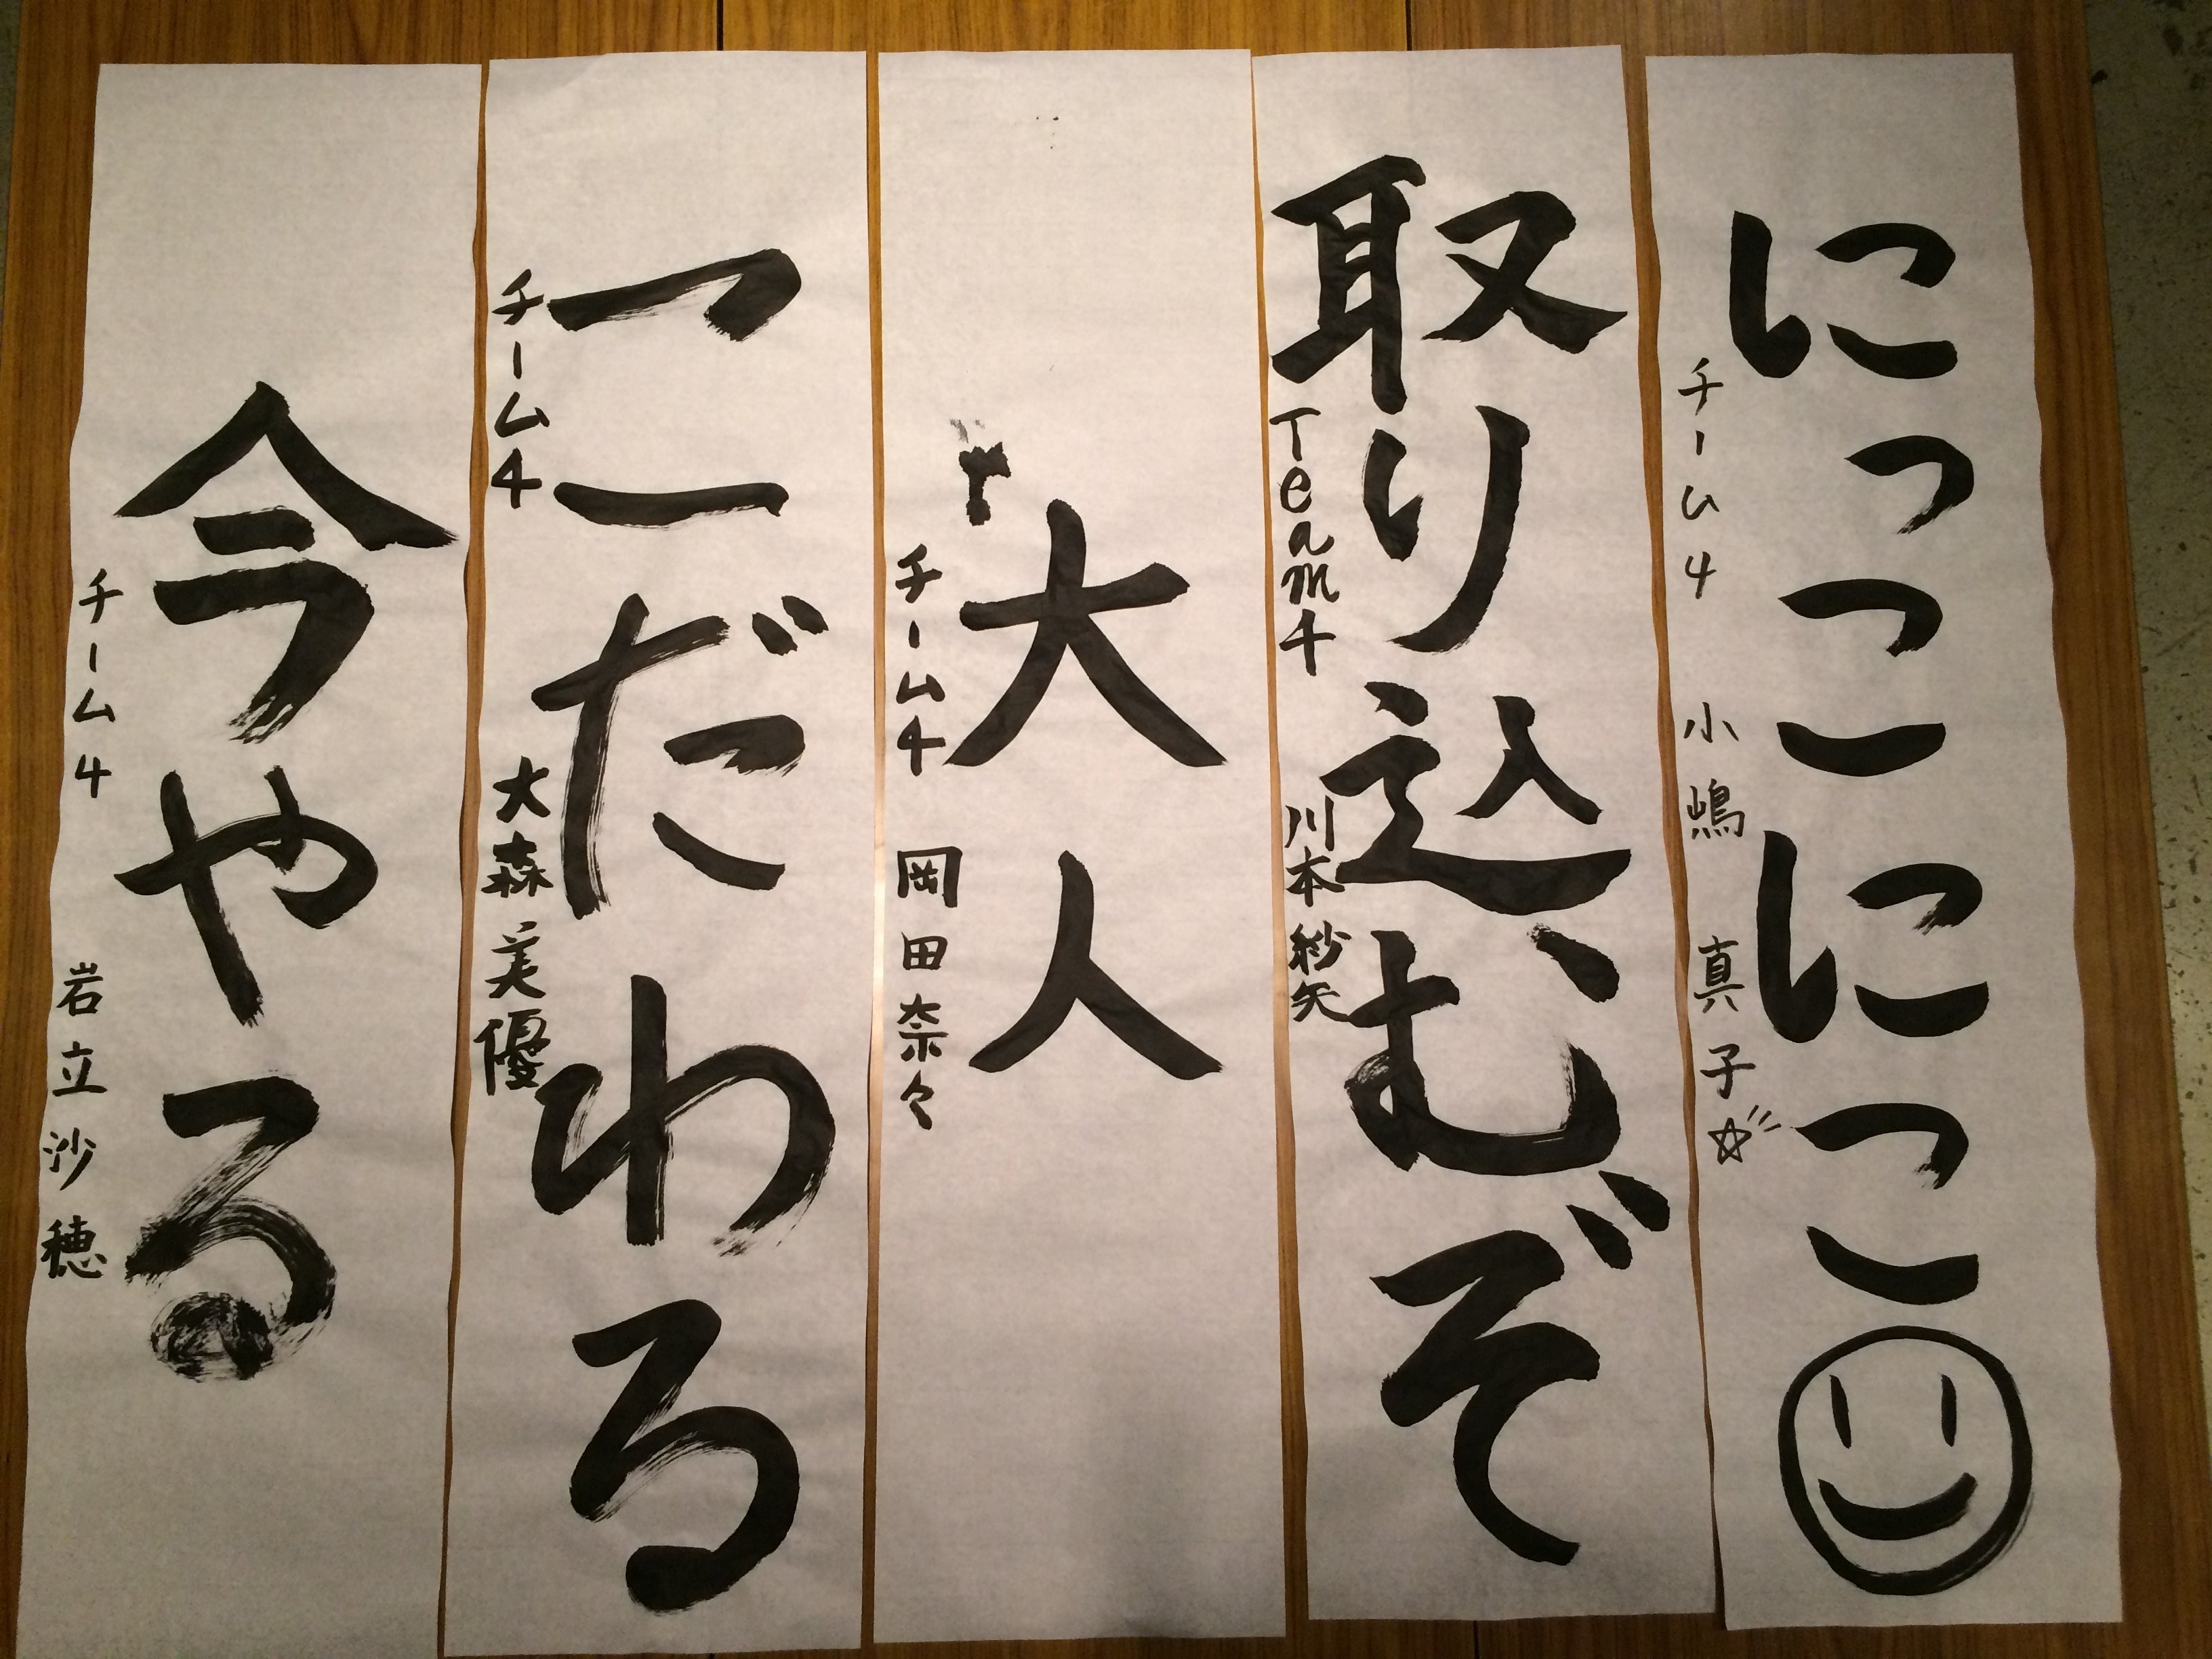 にっこにこ
チーム4 小嶋真子☆
取り込むぞ
Team4 川本紗矢
大人
チーム4 岡田奈々
こだわる
チーム4 大森美優
今やる
チーム4 岩立沙穂